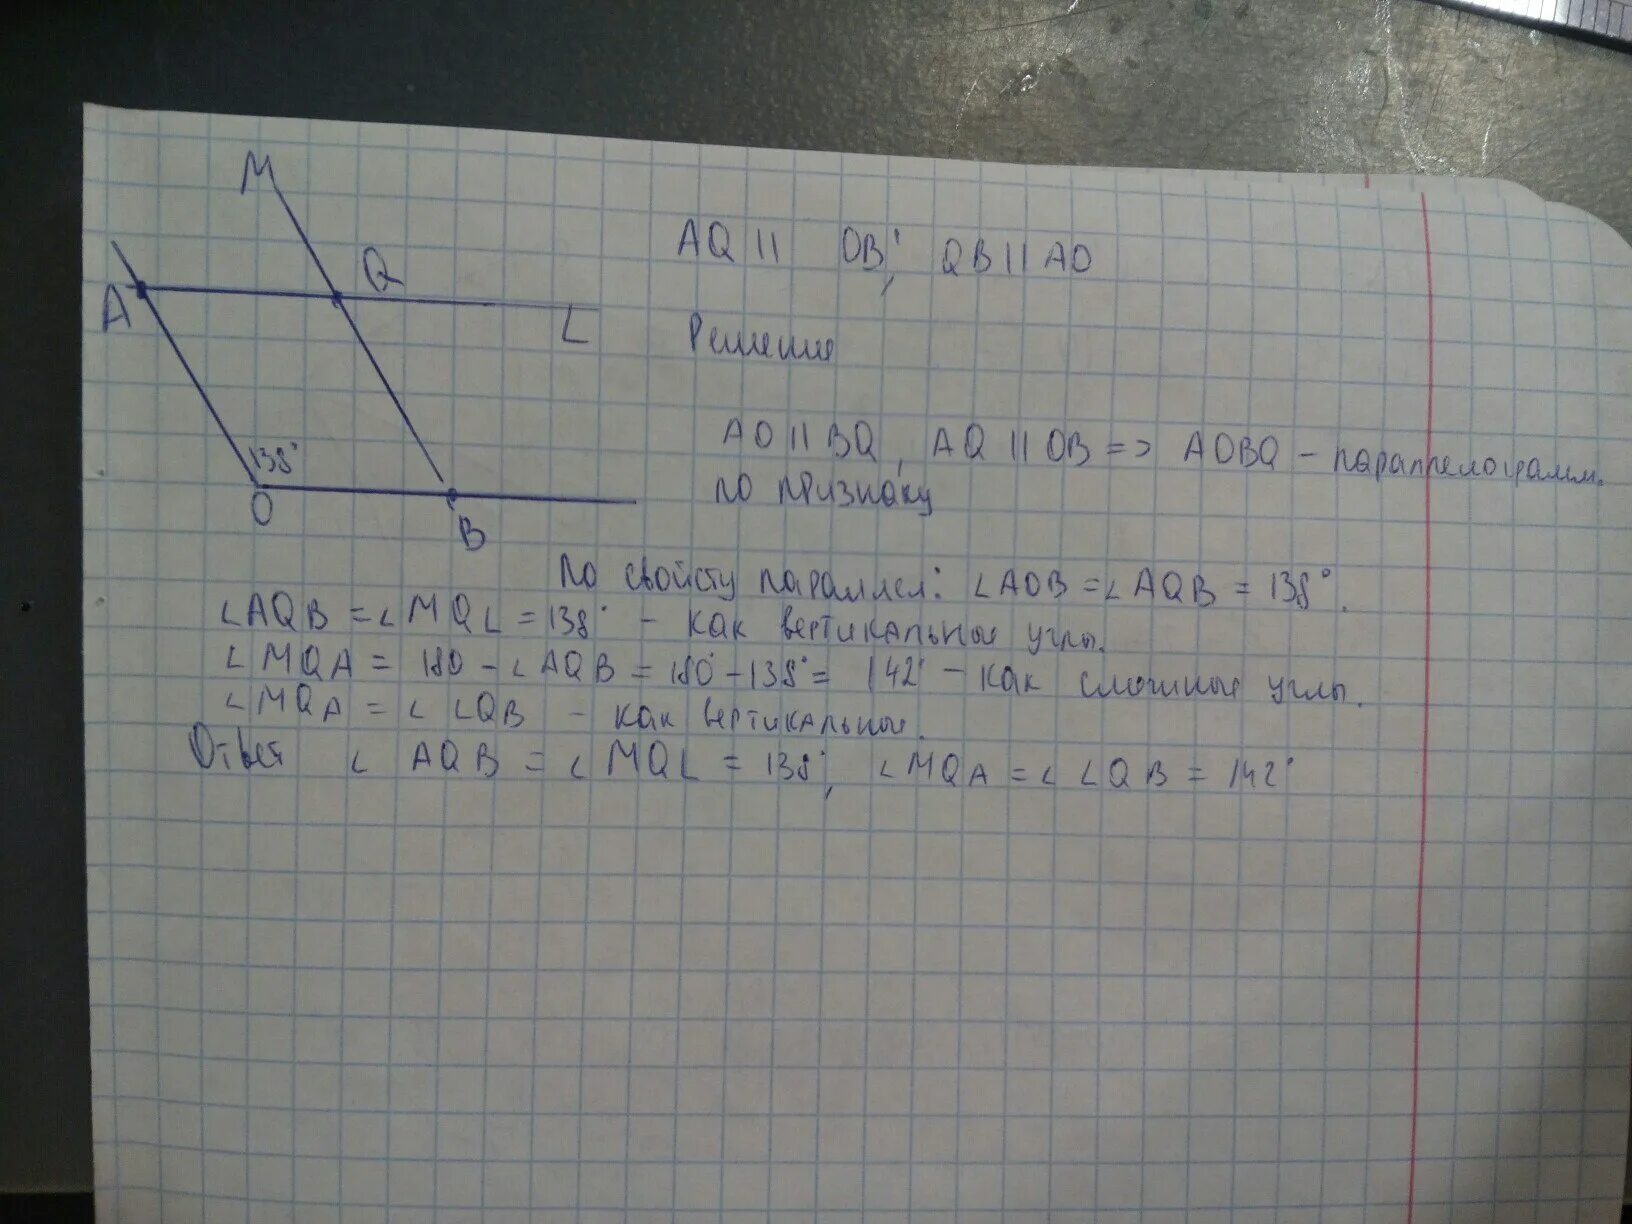 M
Q
A
L
138°
O
B
AQ || OB; QB || AO
Решение
AO || BQ, AQ || OB => AOBQ – параллелограмм.
по признаку
По свойсту параллел: ∠AOB = ∠AQB = 138°.
∠AQB = ∠MQL = 138° – как вертикальные углы.
∠MQA = 180 – ∠AQB = 180° – 138° = 142° – как смежные углы.
∠MQA = ∠LQB – как вертикальные.
Ответ ∠AQB = ∠MQL = 138°, ∠MQA = ∠LQB = 142°